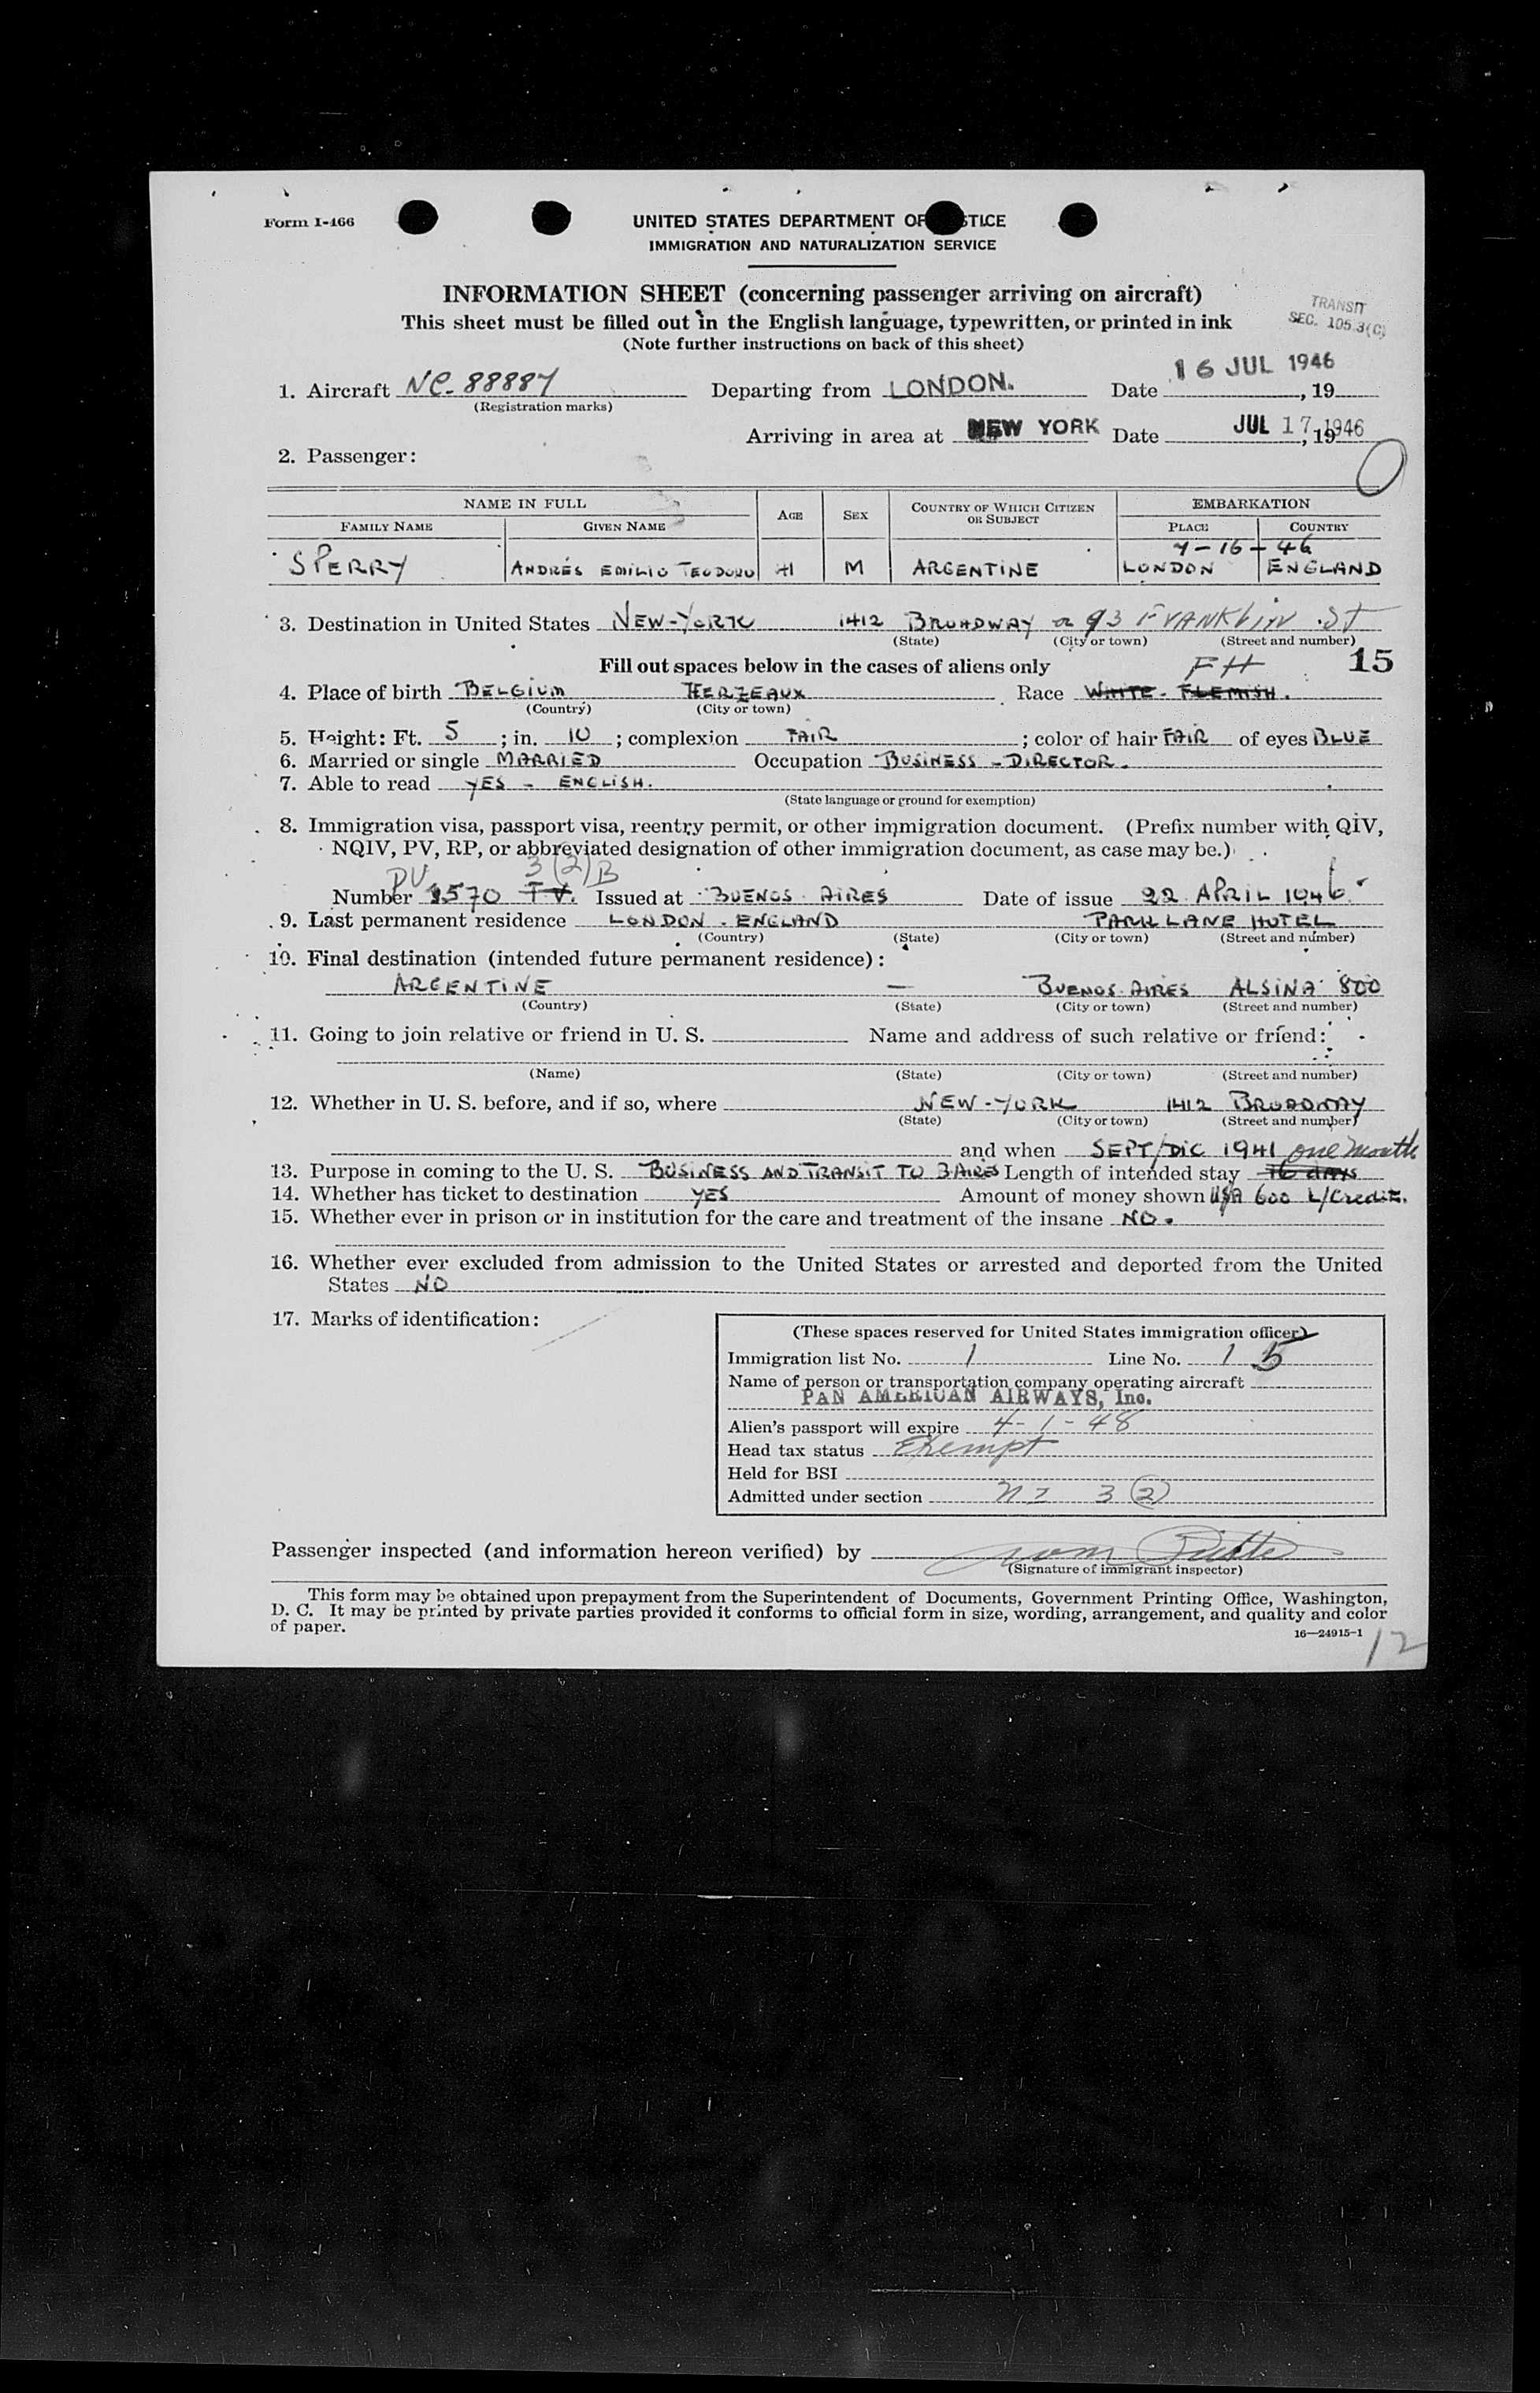 Form I-466
UNITED STATES DEPARTMENT OF JUSTICE
IMMIGRATION AND NATURALIZATION SERVICE
INFORMATION SHEET (concerning passenger arriving on aircraft)
This sheet must be filled out in the English language, typewritten, or printed in ink
(Note further instructions on back of this sheet)
TRANSIT
SEC. 105.3(C)
1. Aircraft NC-88887 Departing from LONDON. Date 16 JUL 1946, 19
(Registration marks)
Arriving in area at NEW YORK Date JUL 17, 1946
2. Passenger:
NAME IN FULL AGE SEX COUNTRY OF WHICH CITIZEN OR SUBJECT EMBARKATION
FAMILY NAME GIVEN NAME PLACE COUNTRY
7-16-46
SPERRY ANDRÉS EMILIO TEODORO 41 M ARGENTINE LONDON ENGLAND
3. Destination in United States NEW-YORK 1412 BROADWAY or 93 FRANKLIN ST
(State) (City or town) (Street and number)
Fill out spaces below in the cases of aliens only FH 15
4. Place of birth BELGIUM HERZEAUX Race WHITE - FLEMISH.
(Country) (City or town)
5. Height: Ft. 5; in. 10; complexion FAIR; color of hair FAIR of eyes BLUE
6. Married or single MARRIED Occupation BUSINESS - DIRECTOR.
7. Able to read YES - ENGLISH.
(State language or ground for exemption)
8. Immigration visa, passport visa, reentry permit, or other immigration document. (Prefix number with QIV,
NQIV, PV, RP, or abbreviated designation of other immigration document, as case may be.)
PV 3(2)B
Number 2570 T.V. Issued at BUENOS AIRES Date of issue 22 APRIL 1946
9. Last permanent residence LONDON - ENGLAND PARK LANE HOTEL
(Country) (State) (City or town) (Street and number)
10. Final destination (intended future permanent residence):
ARGENTINE — BUENOS AIRES ALSINA 800
(Country) (State) (City or town) (Street and number)
11. Going to join relative or friend in U. S. Name and address of such relative or friend:
(Name) (State) (City or town) (Street and number)
12. Whether in U. S. before, and if so, where NEW-YORK 1412 BROADWAY
(State) (City or town) (Street and number)
and when SEPT/DIC 1941 one month
13. Purpose in coming to the U. S. BUSINESS AND TRANSIT TO B AIRES Length of intended stay 16 DAYS
14. Whether has ticket to destination YES Amount of money shown USA 600 L/Credit.
15. Whether ever in prison or in institution for the care and treatment of the insane NO.
16. Whether ever excluded from admission to the United States or arrested and deported from the United
States NO
17. Marks of identification:
(These spaces reserved for United States immigration officer)
Immigration list No. 1 Line No. 1 5
Name of person or transportation company operating aircraft
PAN AMERICAN AIRWAYS, Inc.
Alien's passport will expire 4-1-48
Head tax status Exempt
Held for BSI
Admitted under section 3 (2)
Passenger inspected (and information hereon verified) by
(Signature of immigrant inspector)
This form may be obtained upon prepayment from the Superintendent of Documents, Government Printing Office, Washington,
D. C. It may be printed by private parties provided it conforms to official form in size, wording, arrangement, and quality and color
of paper.
16—24915-1
12